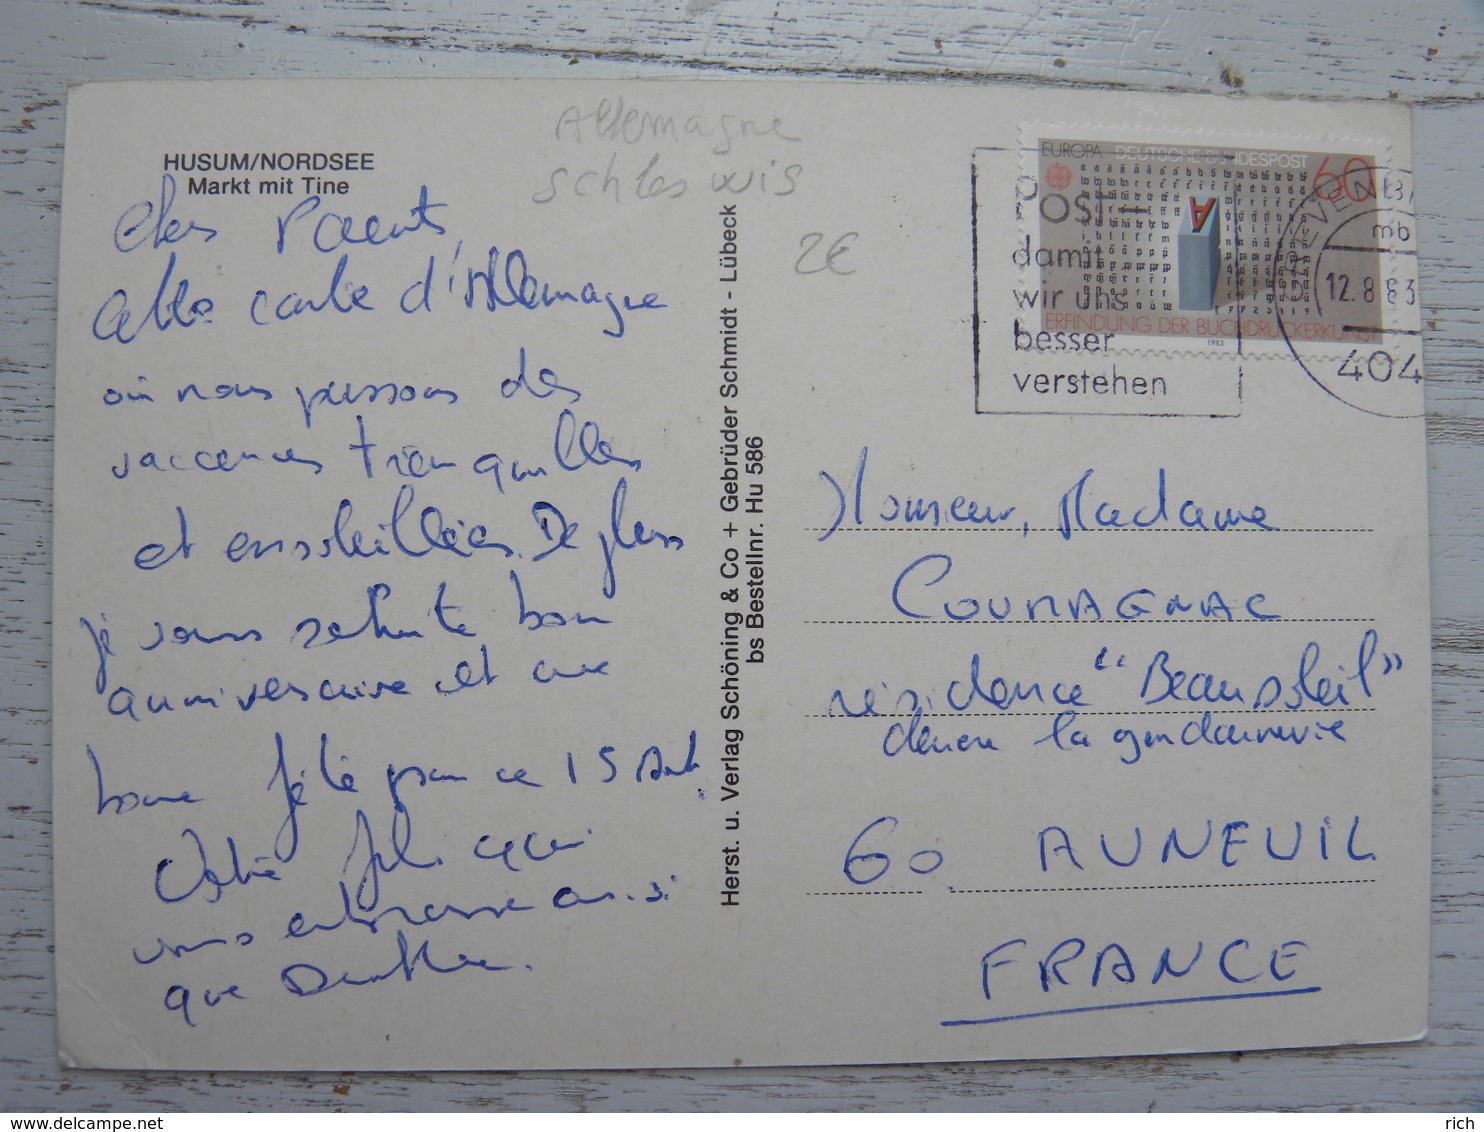 Allemagne
schleswis
HUSUM/NORDSEE
Markt mit Tine
2€
chers Parents,
carte d'Allemagne
où nous passons des
vaccances tranquilles
et ensoleillées. De plus
je vous souhaite bon
anniversaire et une
bonne fête pour ce 15 Aout.
Votre qui
vous embrasse ainsi
que
Herst. u. Verlag Schöning & Co + Gebrüder Schmidt - Lübeck
bs Bestellnr. Hu 586
EUROPA DEUTSCHE BUNDESPOST 60
A
ERFINDUNG DER BUCHDRUCKERKUNST
1983
POST –
damit
wir uns
besser
verstehen
GREVEN
mb
12.8.83
404
Monsieur, Madame
COURAGNAC
résidence "Beausoleil"
derrière la gendarmerie
60 AUNEUIL
FRANCE
www.delcampe.net
rich